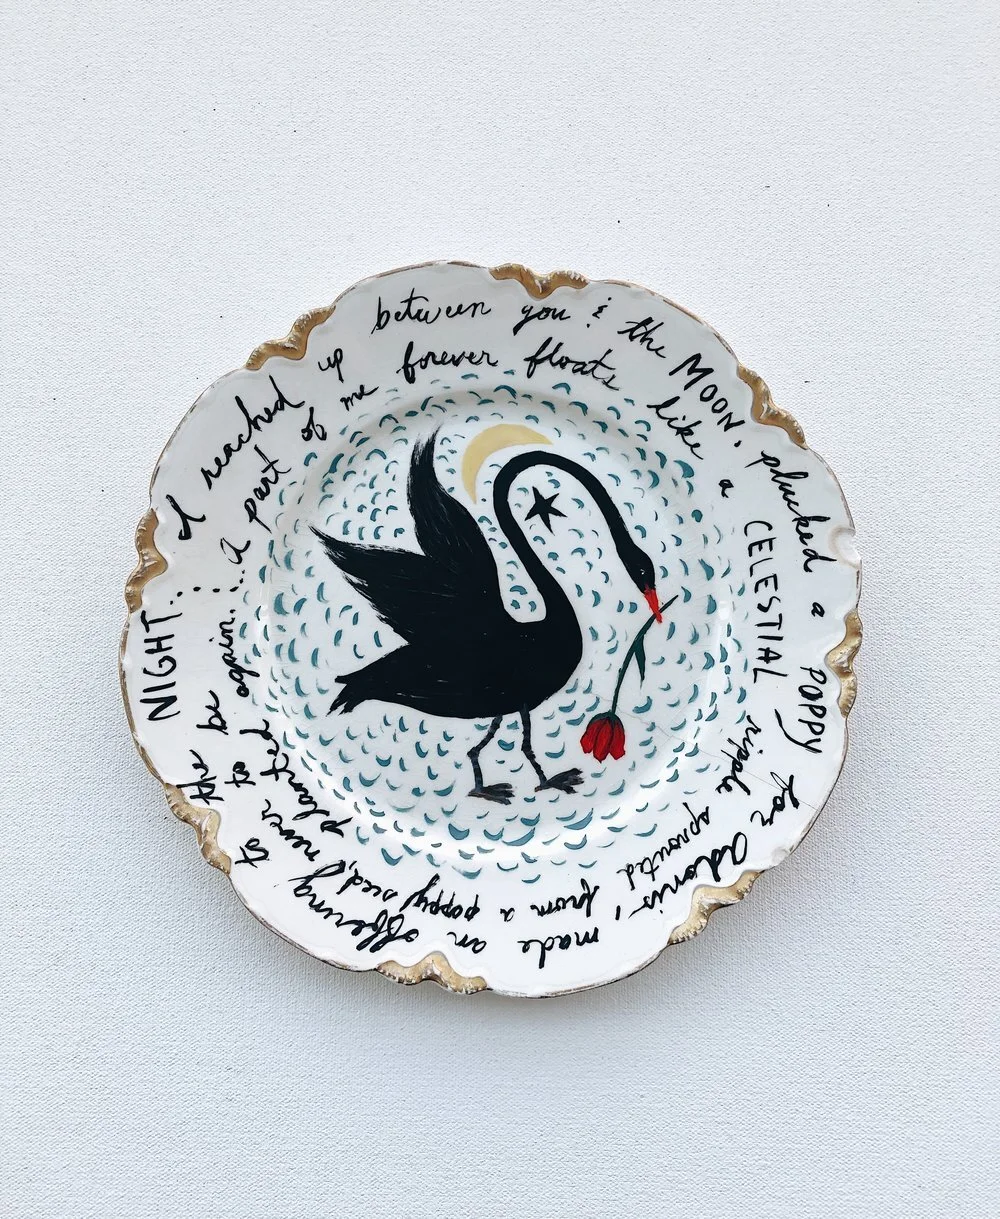 I reached up between you & the MOON, plucked a POPPY for Adonis, made an offering to the NIGHT...
...a part of me forever floats like a CELESTIAL ripple sprouted from a poppy seed, never to be planted again...